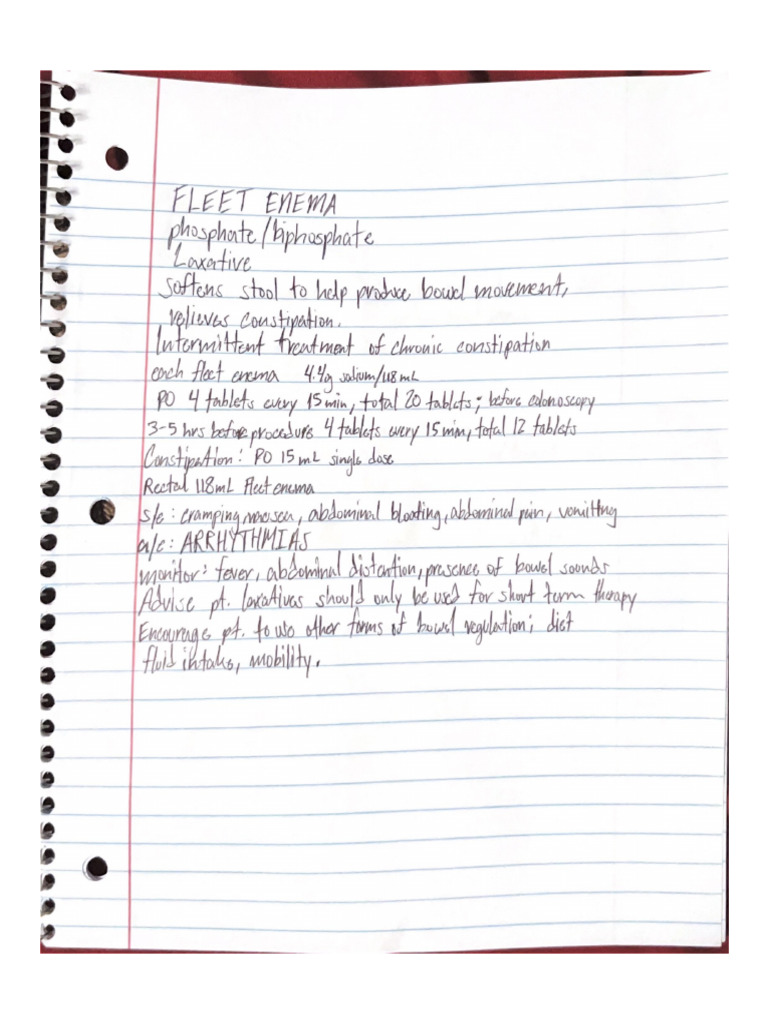 FLEET ENEMA
phosphate/biphosphate
Laxative
Softens stool to help produce bowel movement,
relieves constipation.
Intermittent treatment of chronic constipation
each fleet enema 4.4g sodium/118mL
PO 4 tablets every 15min, total 20 tablets; before colonoscopy
3-5 hrs before procedure 4 tablets every 15min, total 12 tablets
Constipation: PO 15mL single dose
Rectal 118mL Fleet enema
s/e: cramping, nausea, abdominal bloating, abdominal pain, vomitting
a/e: ARRHYTHMIAS
monitor: fever, abdominal distention, presence of bowel sounds
Advise pt. laxatives should only be used for short term therapy
Encourage pt. to use other forms of bowel regulation; diet
fluid intake, mobility.